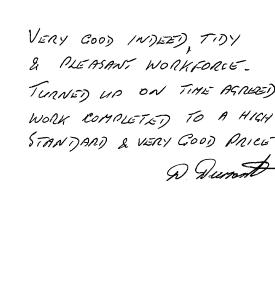 VERY GOOD INDEED, TIDY
& PLEASANT WORKFORCE.
TURNED UP ON TIME AGREED
WORK COMPLETED TO A HIGH
STANDARD & VERY GOOD PRICE